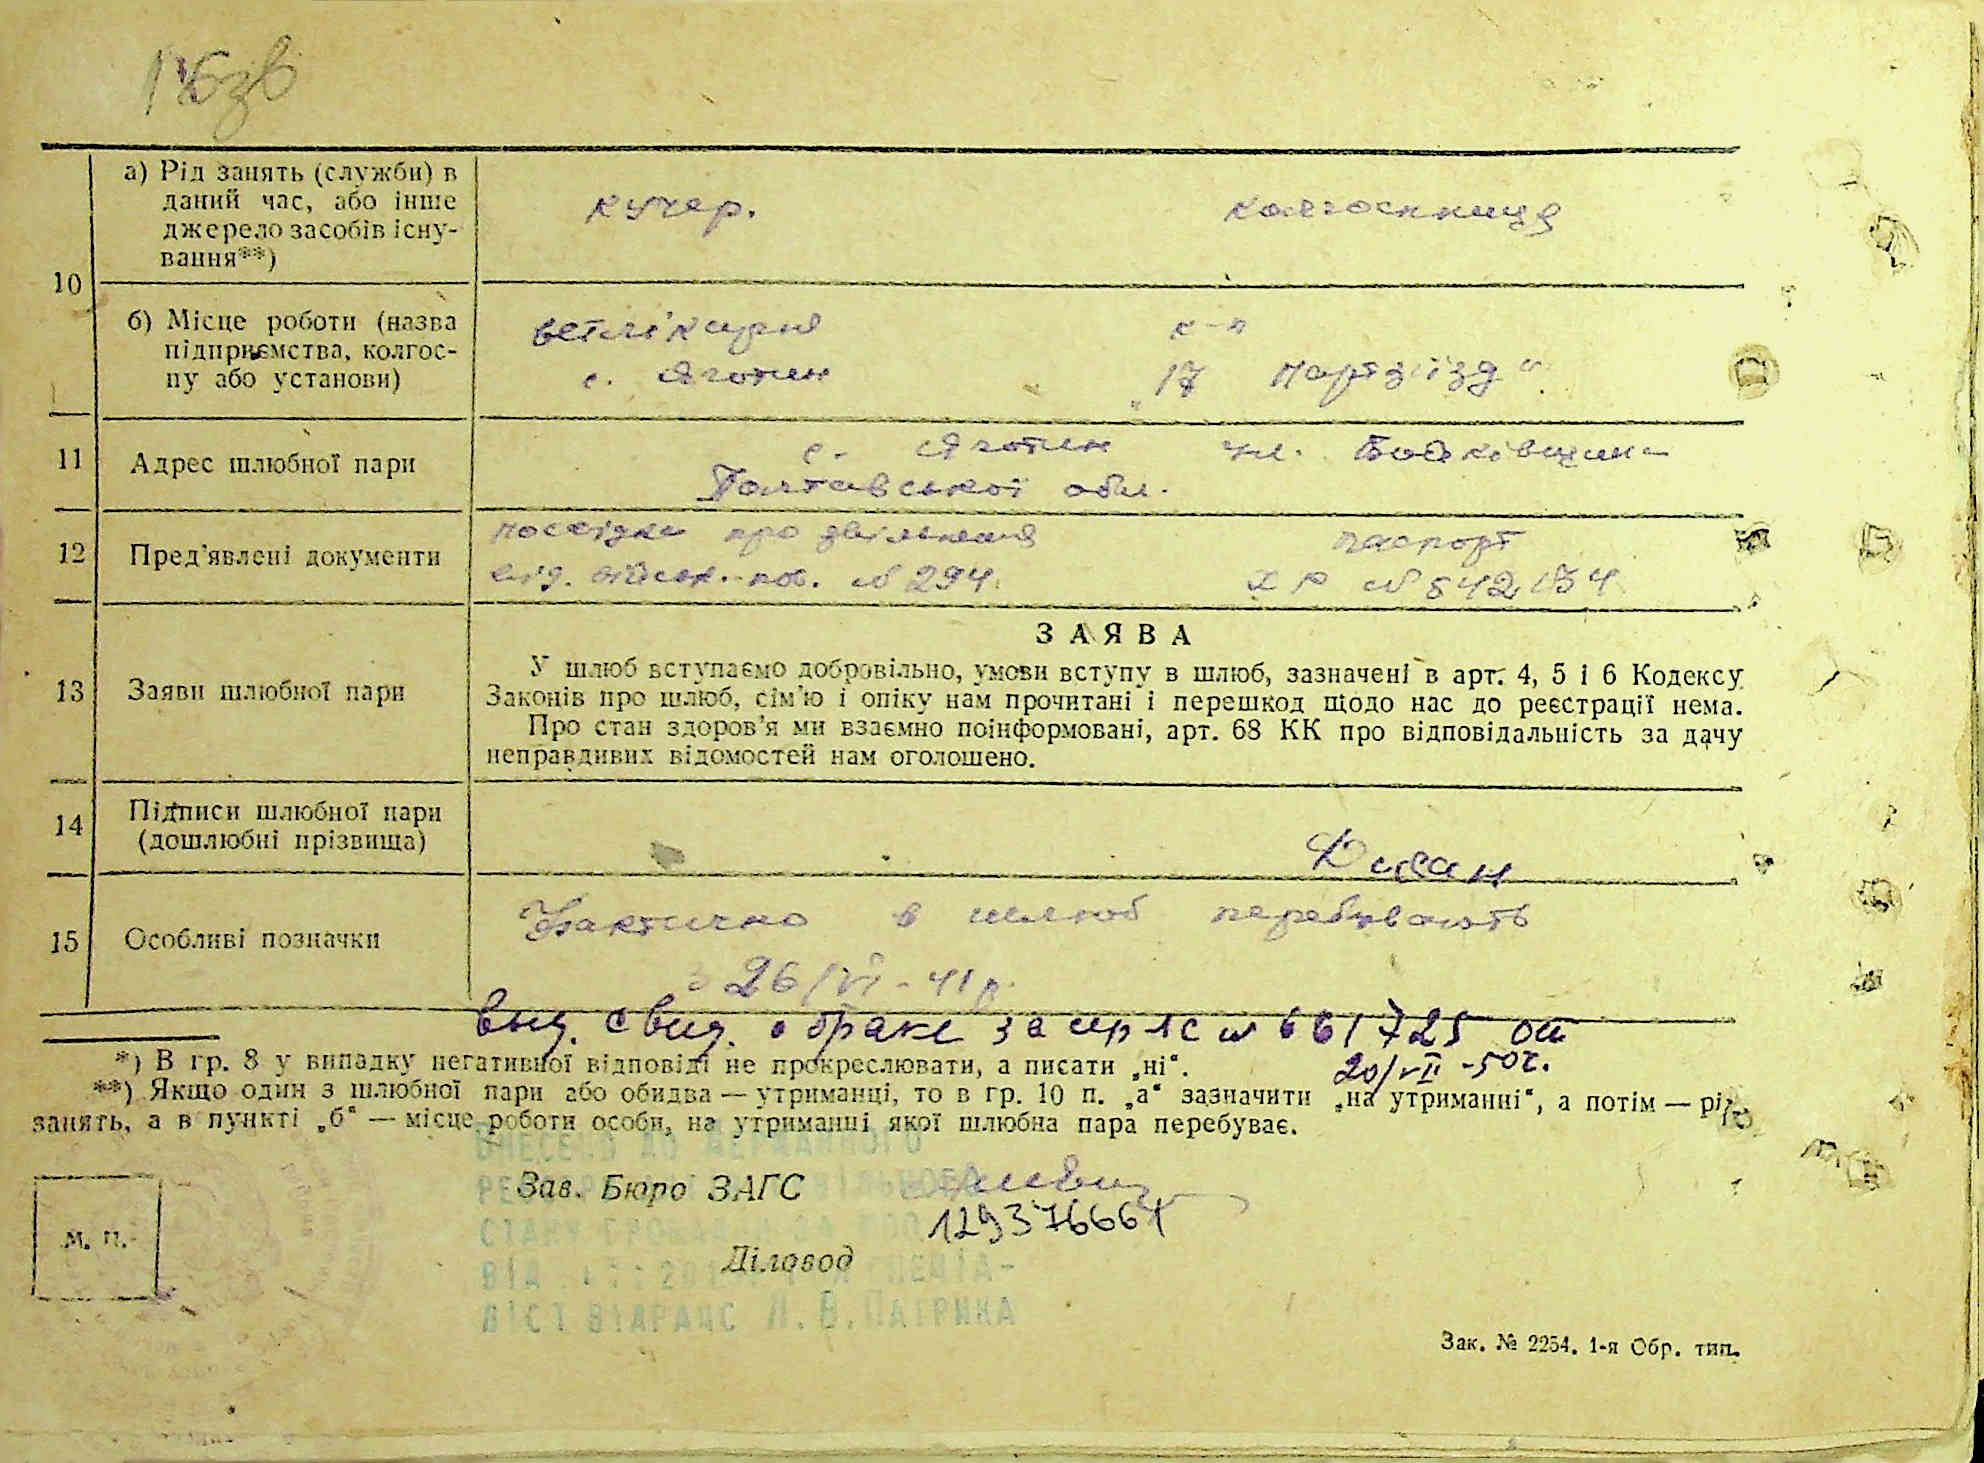 10
а) Рід занять (служби) в
даний час, або інше
джерело засобів існу-
вання**)
кучер.
колгоспниця
б) Місце роботи (назва
підприємства, колгос-
пу або установи)
ветлікарня
с. Яготин
к-п
„17 партз'їзд"
11
Адрес шлюбної пари
с. Яготин
Полтавської обл.
12
Пред'явлені документи
посвідка про звільнення
від. військ. пов. № 294.
паспорт
13
Заяви шлюбної пари
ЗАЯВА
У шлюб вступаємо добровільно, умови вступу в шлюб, зазначені в арт. 4, 5 і 6 Кодексу
Законів про шлюб, сім'ю і опіку нам прочитані і перешкод щодо нас до реєстрації нема.
Про стан здоров'я ми взаємно поінформовані, арт. 68 КК про відповідальність за дачу
неправдивих відомостей нам оголошено.
14
Підписи шлюбної пари
(дошлюбні прізвища)
15
Особливі позначки
Фактично в шлюб перебувають
з 26/VI-41 р.
выд. свид. о браке за № 661725 от
20/VII-50 г.
*) В гр. 8 у випадку негативної відповіді не прокреслювати, а писати „ні".
**) Якщо один з шлюбної пари або обидва — утриманці, то в гр. 10 п. „а" зазначити „на утриманні", а потім — рід
занять, а в пункті „б" — місце роботи особи, на утриманні якої шлюбна пара перебуває.
ВНЕСЕНО ДО ДЕРЖАВНОГО
Зав. Бюро ЗАГС
СТАНУ ГРОМАДЯН
129376664
Діловод
ВІД СПЕЦІА-
ЛІСТ ВІДРАЦС Л. В. ПАТРИКА
м. п.
Зак. № 2254. 1-я Обр. тип.